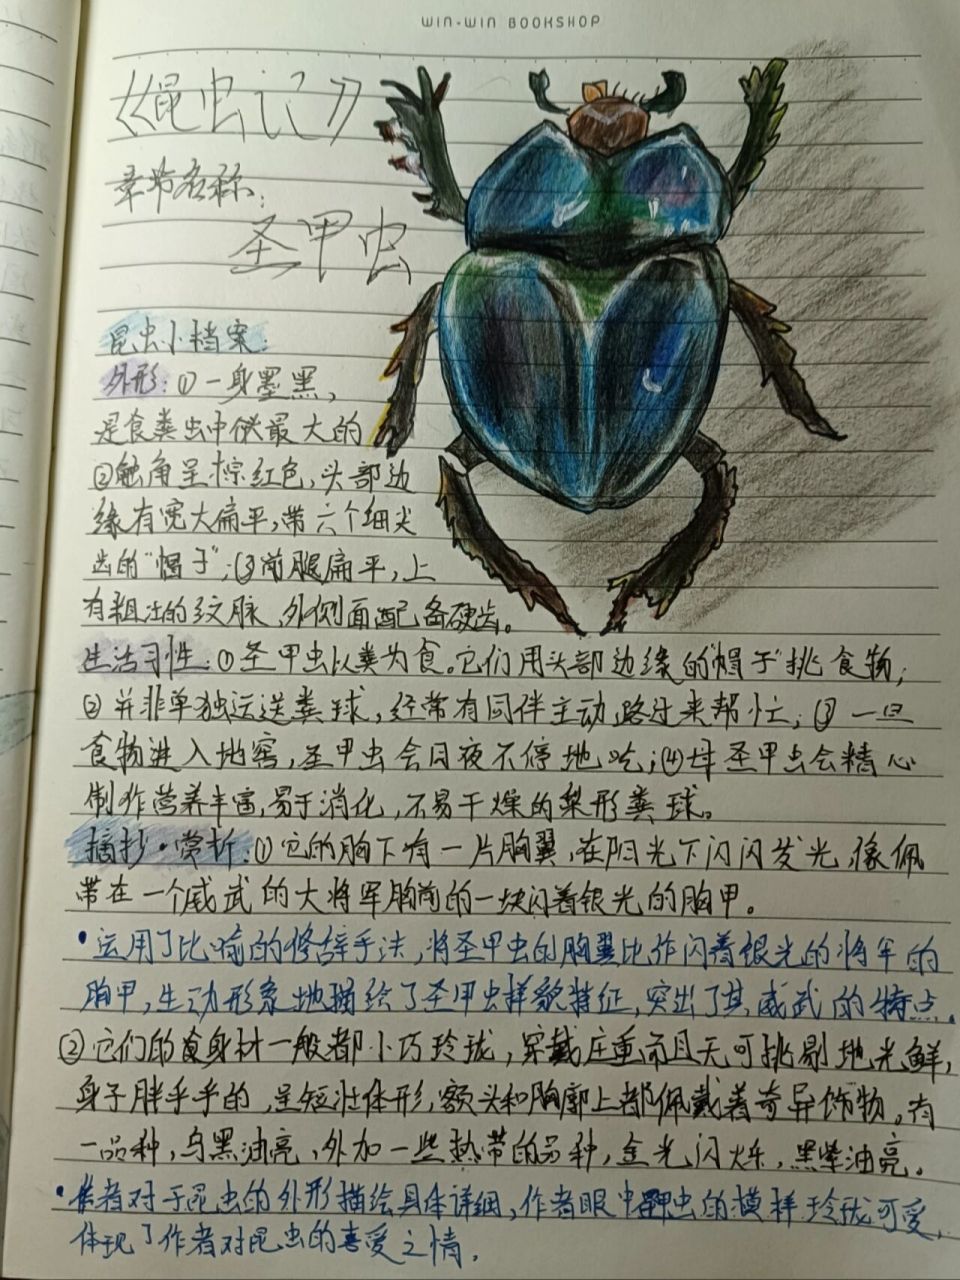 WIN-WIN BOOKSHOP
《昆虫记》
章节名称:
圣甲虫
昆虫小档案:
外形:①一身墨黑,
是食粪虫中做最大的
②触角呈棕红色,头部边
缘有宽大扁平,带六个细尖
齿的“帽子”;③前腿扁平,上
有粗壮的纹脉,外侧面配备硬齿。
生活习性:①圣甲虫以粪为食。它们用头部边缘的“帽子”挑食物;
②并非单独运送粪球,经常有同伴主动,路过来帮忙;③一旦
食物进入地窖,圣甲虫会日夜不停地吃;④母圣甲虫会精心
制作营养丰富,易于消化,不易干燥的梨形粪球。
摘抄·赏析:①它的胸下有一片胸翼,在阳光下闪闪发光,像佩
带在一个威武的大将军胸前的一块闪着银光的胸甲。
·运用了比喻的修辞手法,将圣甲虫的胸翼比作闪着银光的将军的
胸甲,生动形象地描绘了圣甲虫样貌特征,突出了其威武的特点。
②它们的食身材一般都小巧玲珑,穿戴庄重而且无可挑剔地光鲜,
身子胖乎乎的,呈短壮体形,额头和胸廓上都佩戴着奇异饰物。有
一品种,乌黑油亮,外加一些热带的品种,金光闪烁,黑紫油亮。
·作者对于昆虫的外形描绘具体详细,作者眼中虫的模样玲珑可爱,
体现了作者对昆虫的喜爱之情。